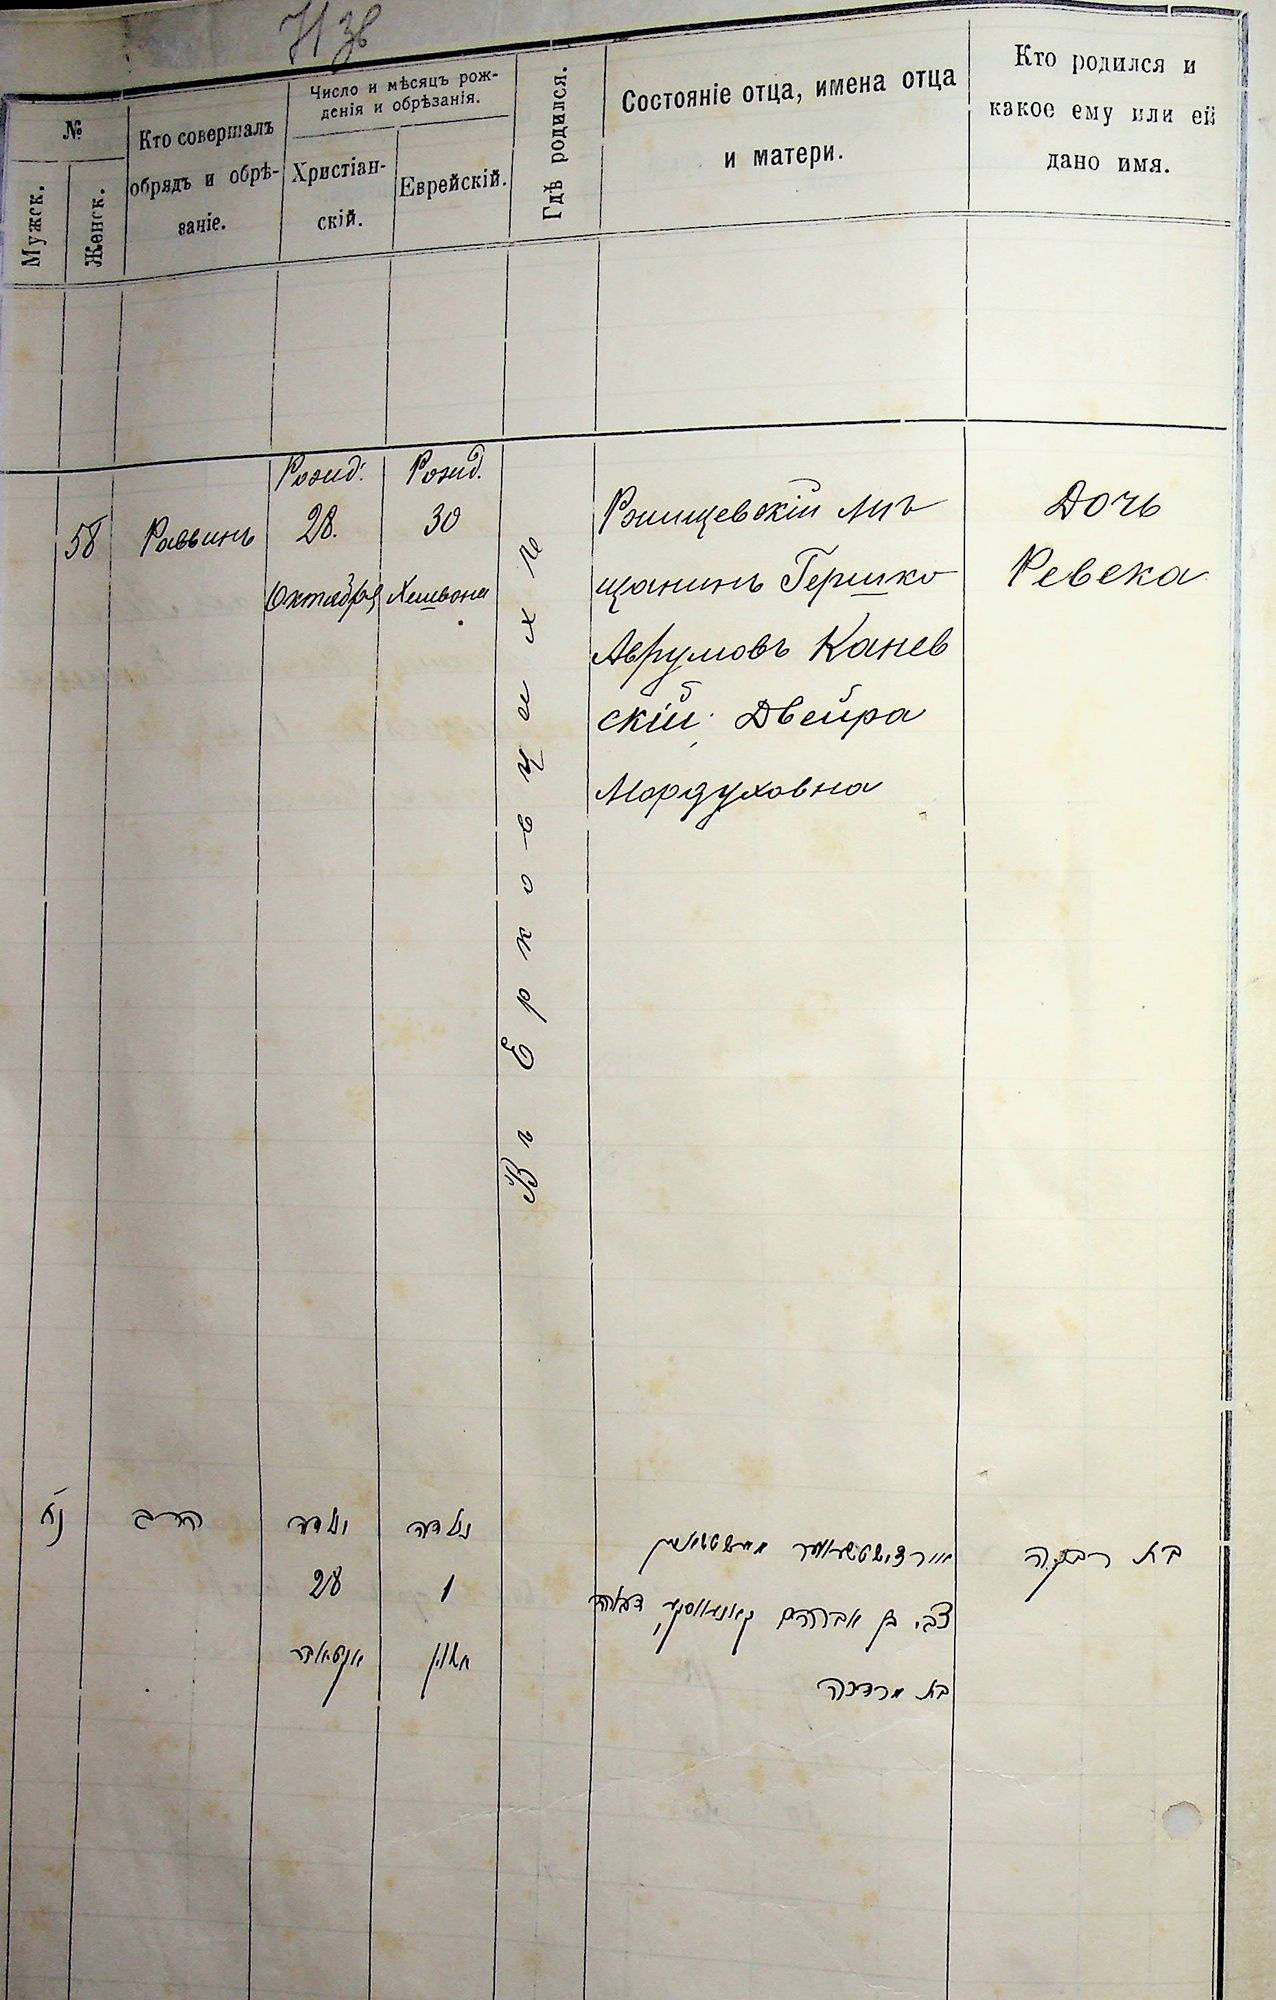 №
Мужск.
Женск.
Кто совершалъ
обрядъ и обрѣ-
заніе.
Число и мѣсяцъ рож-
денія и обрѣзанія.
Христіан-
скій.
Еврейскій.
Гдѣ родился.
Состояніе отца, имена отца
и матери.
Кто родился и
какое ему или ей
дано имя.
58
Раввинъ
Рожид.
28.
Октября
Рожид.
30
Хешвона
Въ Ерковцихъ
Ржищевскій мѣ
щанинъ Гершко
Аврумовъ Канев
скій; Двейра
Мордуховна
Дочь
Ревека
הרב
נולדה
28
נולדה
1
חשון
צבי בן אברהם
בת מרדכה
בת רבקה